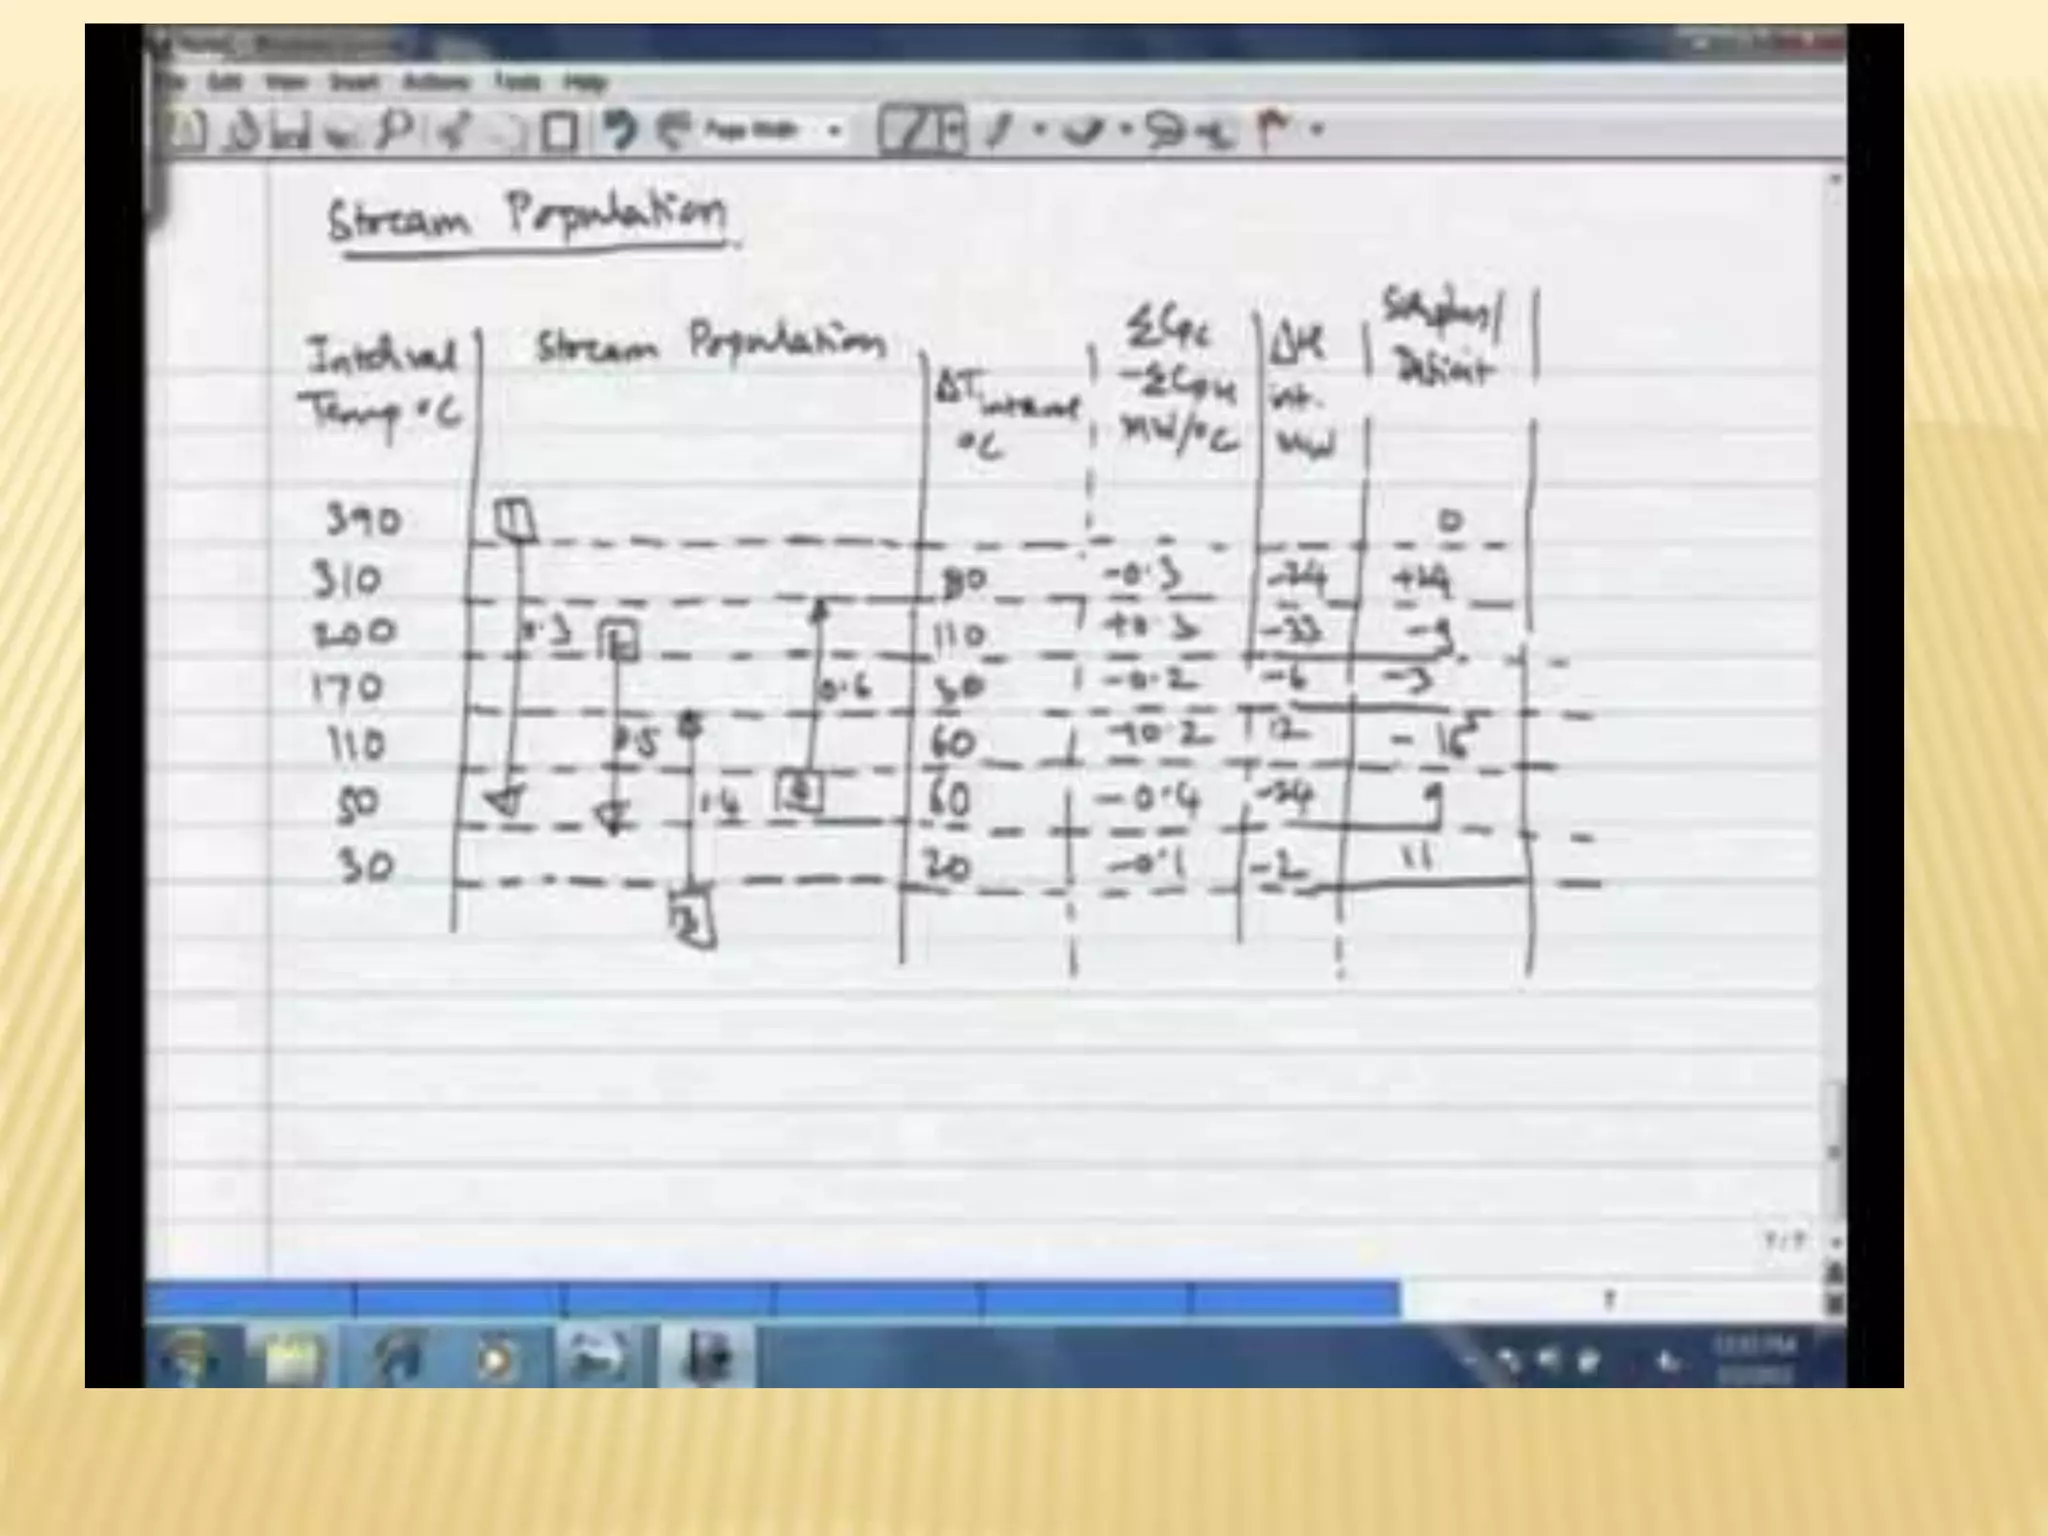 File Edit View Insert Actions Tools Help
Page Width
Stream Population
Interval Temp °C
Stream Population
ΔT interval °C
ΣCpc - ΣCpH MW/°C
ΔH int. MW
Surplus/ Deficit
390 1 0
310 80 -0.3 -24 +24
200 0.3 2 110 +0.3 -33 -9
170 0.6 30 -0.2 -6 -3
110 0.5 60 +0.2 12 -15
50 0.4 4 60 -0.4 -24 9
30 20 -0.1 -2 11
3
7/7
7